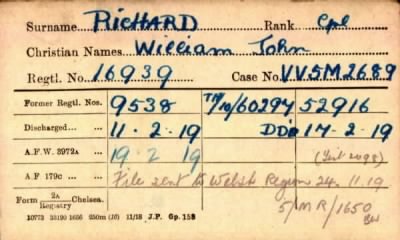 Surname RICHARD Rank Cpl
Christian Names William John
Regtl. No. 16939 Case No. VVSM2689
Former Regtl. Nos. 9538 TR/10/60297 52916
Discharged 11.2.19 DDD 17-2-19
A.F.W. 3972A 19.2.19 (List 2098)
A.F. 179C File sent to Welsh Region 24.11.19
Form 2A Registry Chelsea. 5/MR/1650
10773 33190 1656 250m (16) 11/18 J.P. Gp. 158